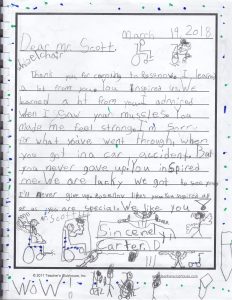 March 19, 2018
Dear Mr. Scott,
wheelchair
Thank you for coming to Rosshow I learned
a lot from you. You Inspired us. We
learned a lot from you. I admired
when I saw your muscles. You
made me feel strong. I'm sorry
for what you've went through, when
you got in a car accident. But
you never gave up. You inspired
me. We are lucky We got to see you
I'll never give up
you are special. We like you
Scott
Sincerely
Carter
© 2011 Teacher's Clubhouse, Inc.
WOW
WOW